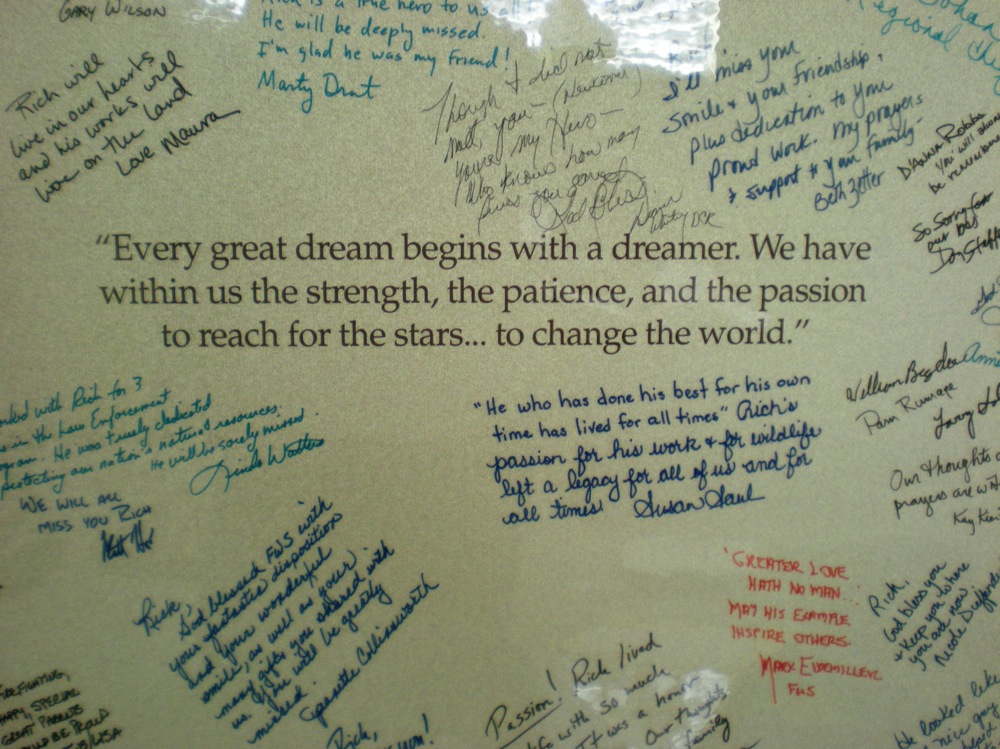 GARY WILSON
Rich is a true hero to us all
He will be deeply missed.
I'm glad he was my friend!
Rich will
live in our hearts
and his works will
live on the land
Love Maura
Though I did not
meet you - (Newcomer)
You're my Hero -
Who knows how many
lives you saved
God Bless
I'll miss your
smile + your friendship,
plus dedication to your
proud work. My prayers
+ support to your family -
Beth Zetter
Regional
DAWN
You will always
be remembered
So Sorry for
our loss
"Every great dream begins with a dreamer. We have
within us the strength, the patience, and the passion
to reach for the stars... to change the world."
worked with Rich for 3
in the Law Enforcement
He was truly dedicated
protecting our nation's natural resources.
He will be sorely missed.
Linda Watters
WE WILL ALL
MISS YOU RICH
"He who has done his best for his own
time has lived for all times" Rich's
passion for his work + for wildlife
left a legacy for all of us and for
all times!
Susan Saul
William
Pam Rumage
Larry
Our thoughts
prayers are with
Kay
Rick,
God blessed FWS with
your fantastic disposition
and your wonderful
smile, as well as your
many gifts you shared with
us. You will be greatly
missed.
Collinsworth
"GREATER LOVE
HATH NO MAN...
MAY HIS EXAMPLE
INSPIRE OTHERS.
MARK
FWS
Rich,
God bless you
+ keep you where
you are now
Nicole
FIREFIGHTING,
HAPPY, SPECIAL
GREAT PARENTS
BE PROUD
USA
Rich,
Passion! Rich lived
life with so much
It was a honor
Our thoughts
family
He looked like
nice guy